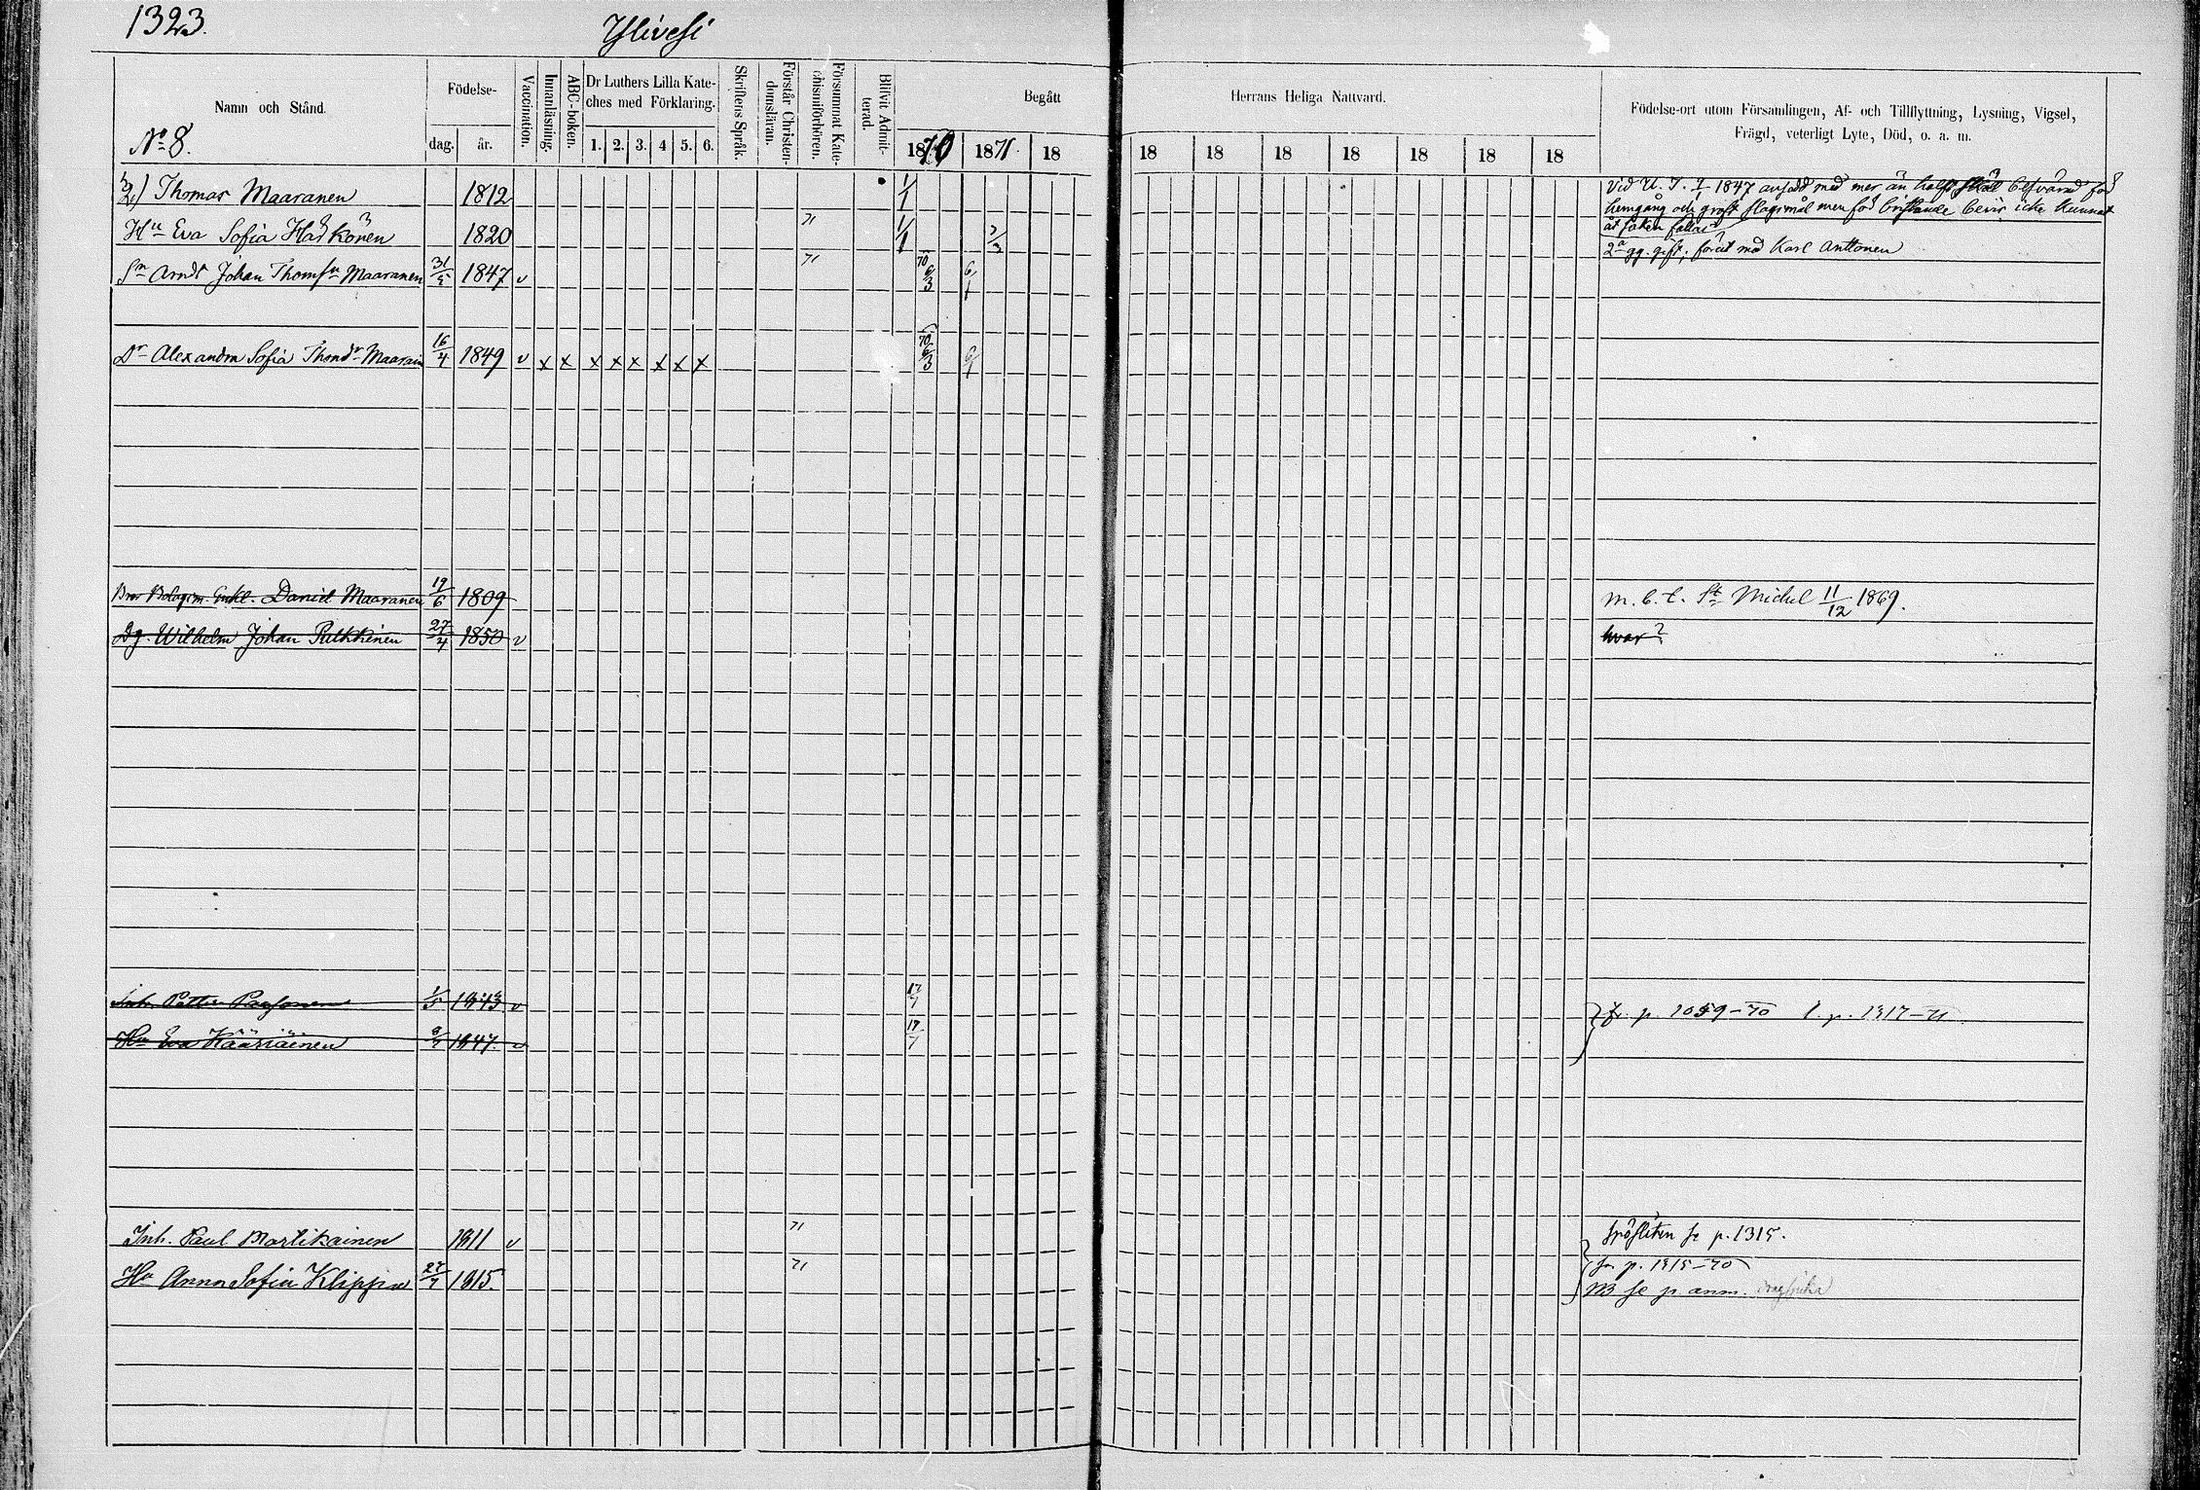 1323.
Ylivesi
Namn och Stånd.
No 8.
Födelse-
dag. år.
Vaccination.
Innanläsning.
ABC-boken.
Dr Luthers Lilla Kate-
ches med Förklaring.
1. 2. 3. 4 5. 6.
Skriftens Språk.
Förstår Christen-
domsläran.
Försummat Kate-
chismiförhören.
Blifvit Admit-
terad.
Begått
Herrans Heliga Nattvard.
1870 1871 18 18 18 18 18 18 18 18
Födelse-ort utom Församlingen, Af- och Tillflyttning, Lysning, Vigsel,
Frägd, veterligt Lyte, Död, o. a. m.
Thomas Maaranen 1812 1/1
Vid U. T. 1847 med mer än
hemgång och groft slagsmål men bevis icke kunnat
Hu Eva Sofia 1820 71 1/1
2a gg. gift; förut med Karl Anttonen
Sn Arndt Johan Thomsn Maaranen 31/5 1847 v 71 70 6/3 6/1
Dr Alexandra Sofia 16/4 1849 v x x x x x x x x 70 6/3 6/1
Daniel Maaranen 19/6 1809
m. b. t. St Michel 11/12 1869.
Dg. Wilhelm Johan Pulkkinen 27/4 1850 v
hvar?
Inh. Petter 1/5 1843 v 17/7
fr. p. 1059-70 t. p. 1317-71
Hu Eva Kääriäinen 1847. v 17/7
Inh. Paul Martikainen 1811 v 71
se p. 1315.
Hu Anna Sofia Klippin 27/7 1815. 71
fr p. 1315-70
NB se p. anm.